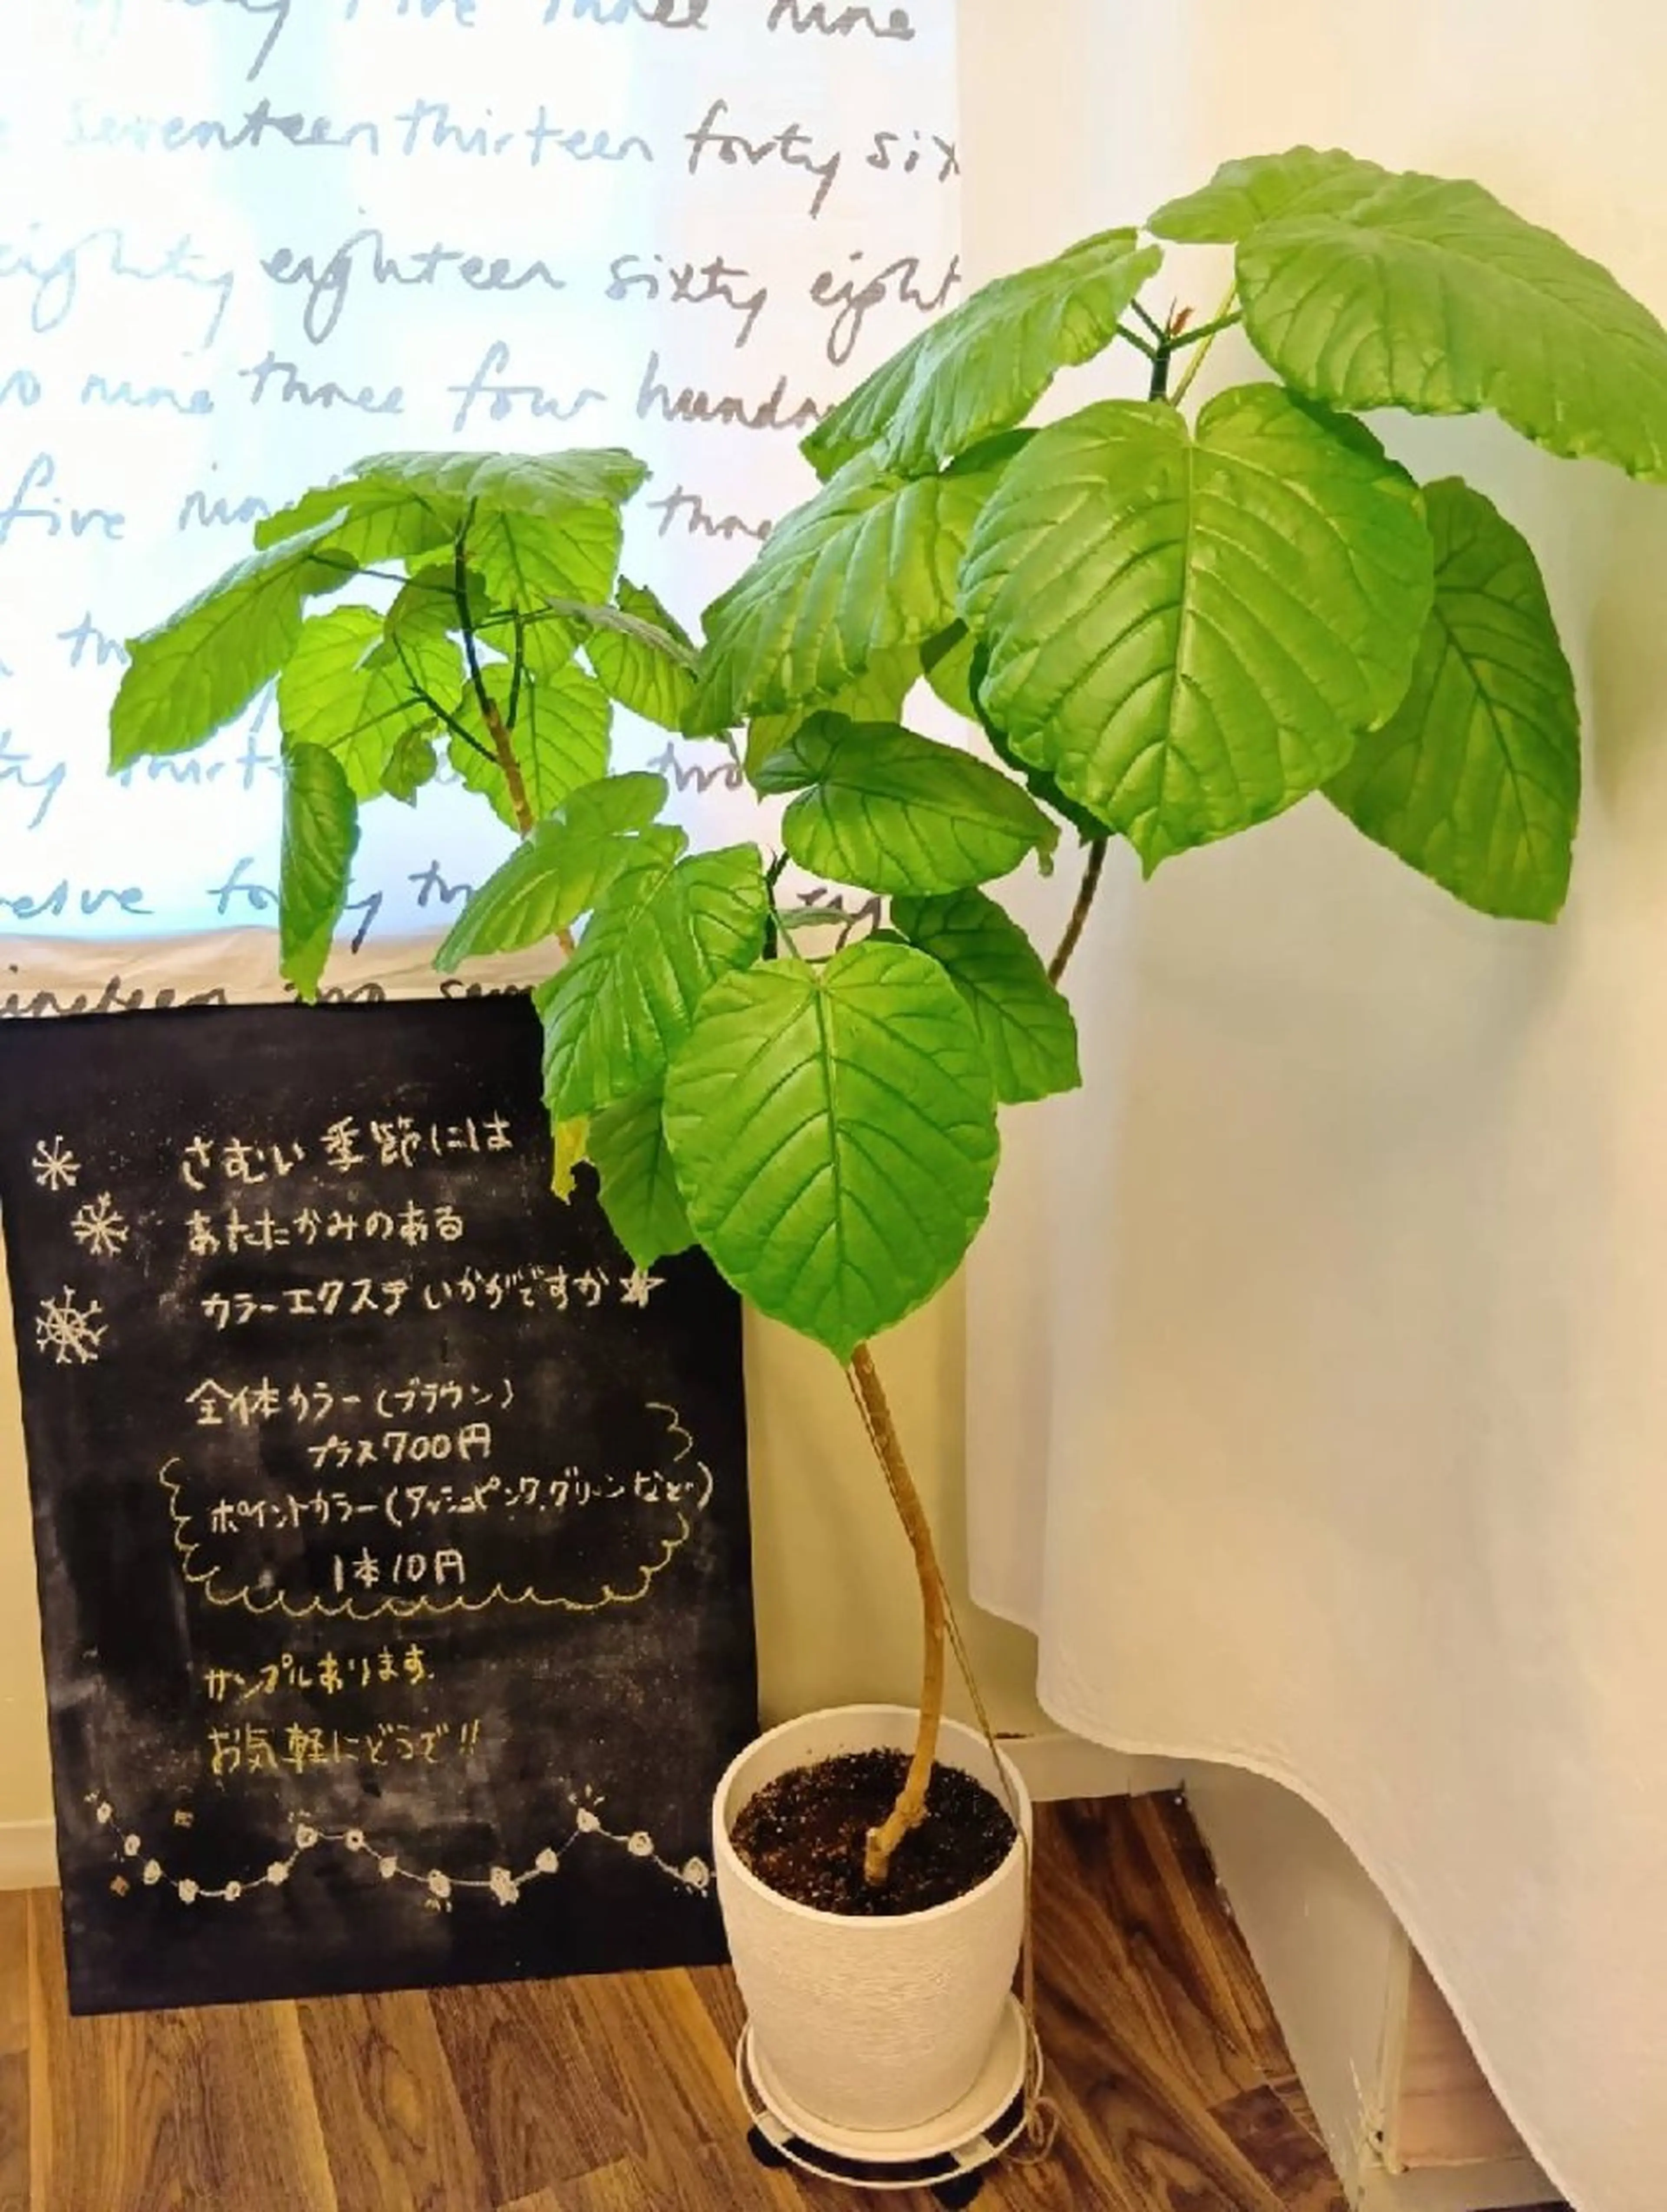 five three nine
seventeen thirteen forty six
eighty eighteen sixty eight
nine three four hundr
five nin three
thirt two
twelve forty
nineteen two
さむい季節には
あたたかみのある
カラーエクステいかがですか☆
全体カラー(ブラウン)
プラス700円
ポイントカラー(アッシュピンク.グリーンなど)
1本10円
サンプルあります.
お気軽にどうぞ!!